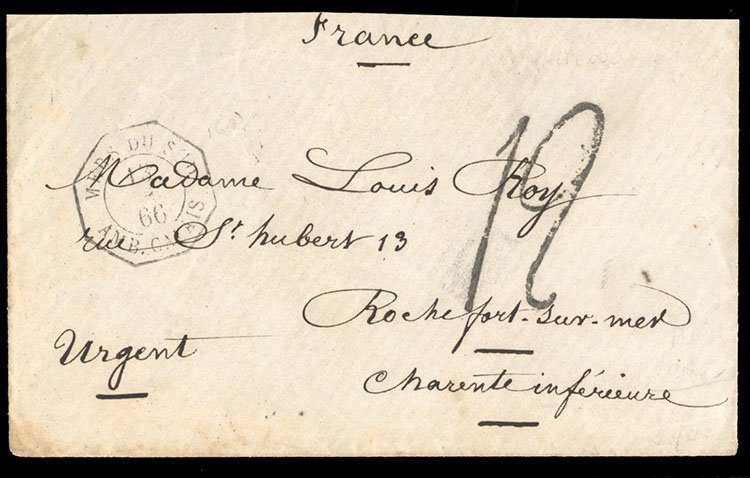 France
MERS DU SUD
66
AMB. CALAIS
12
Madame Louis Roy
rue St hubert 13
Rochefort-sur-mer
Urgent
Charente inférieure